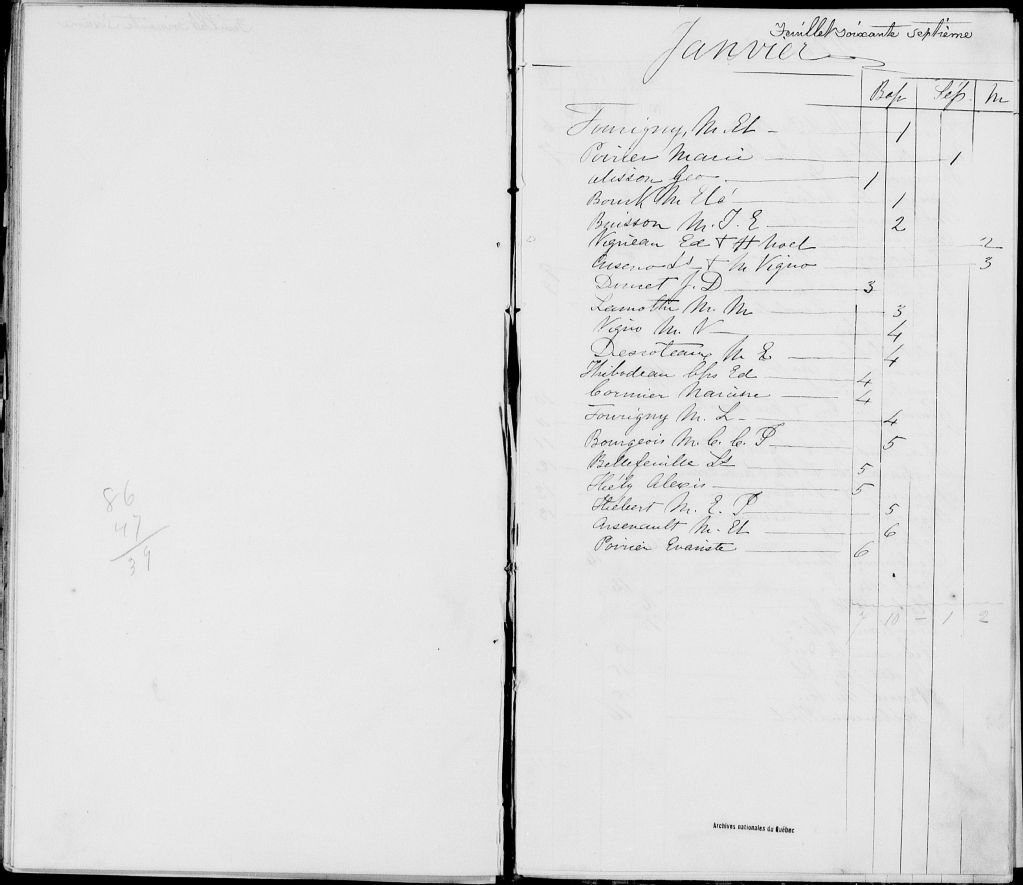 86
47
39
Feuillet soixante septième
Janvier
Bap Sép. M
Fourigny, M. El - 1
Poirier Marie 1
Geo 1
Bourk M Elé 1
Buisson M. J. E 2
Vigneau Ed + H Noel 2
Arseno Ls + M Vigno 3
Doucet J. D 3
Lamothe M. M 3
Vigno M. V 4
Desroteaux M E 4
Thibodeau Chs Ed 4
Cormier Narcisse 4
Fourigny M. L 4
Bourgeois M. C. C. P 5
Bellefeuille Ls 5
Hély Alexis 5
Hébert M. E. P 5
Arsenault M. El 6
Poirier Evariste 6
7 10 - 1 2
Archives nationales du Québec